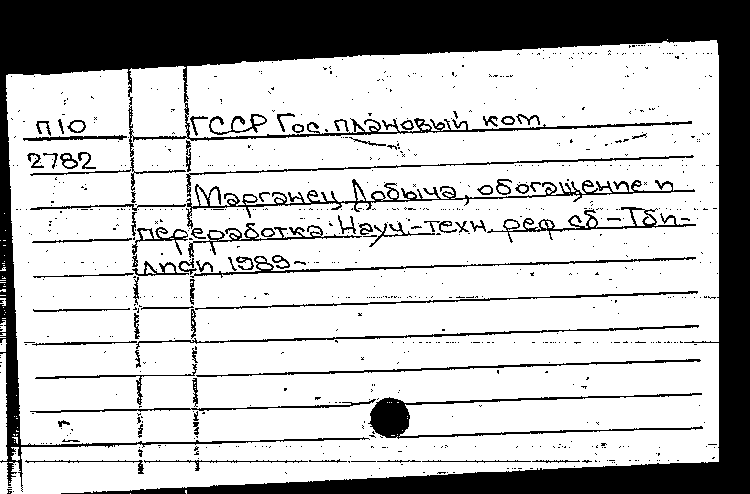 П10 ГССР Гос. плановый ком.
2782
Марганец Добыча, обогащение и
переработка: Науч-техн. реф сб - Тби-
лиси, 1989-